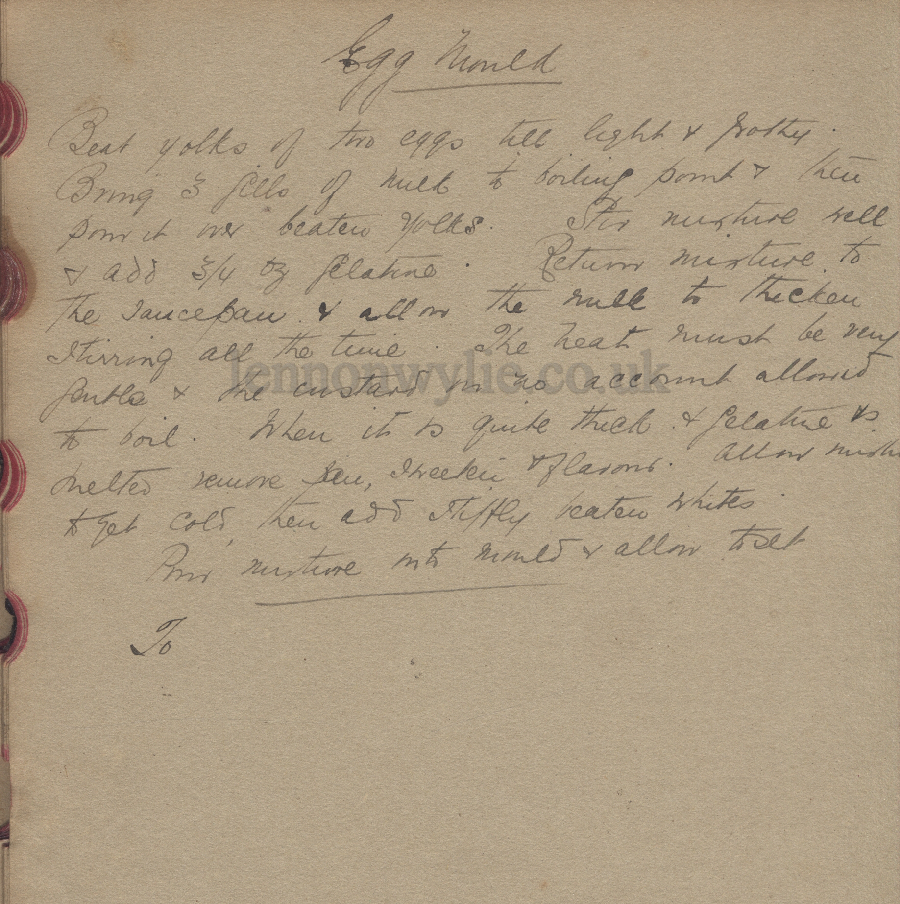 Egg Mould
Beat yolks of two eggs till light & frothy.
Bring 3 gills of milk to boiling point & then
pour it over beaten yolks. Stir mixture well
& add 3/4 oz gelatine. Return mixture to
the saucepan & allow the milk to thicken
stirring all the time. The heat must be very
gentle & the custard on no account allowed
to boil. When it is quite thick & gelatine is
melted remove pan, sweeten & flavour. Allow
to get cold, then add stiffly beaten whites
Pour mixture into mould & allow to set
To
lennonwylie.co.uk